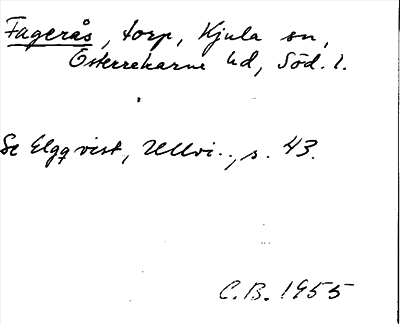 Fagerås, torp, Kjula sn,
Österrekarne hd, Söd. l.
Se Elgqvist, Ullvi.., s. 43.
C.B. 1955